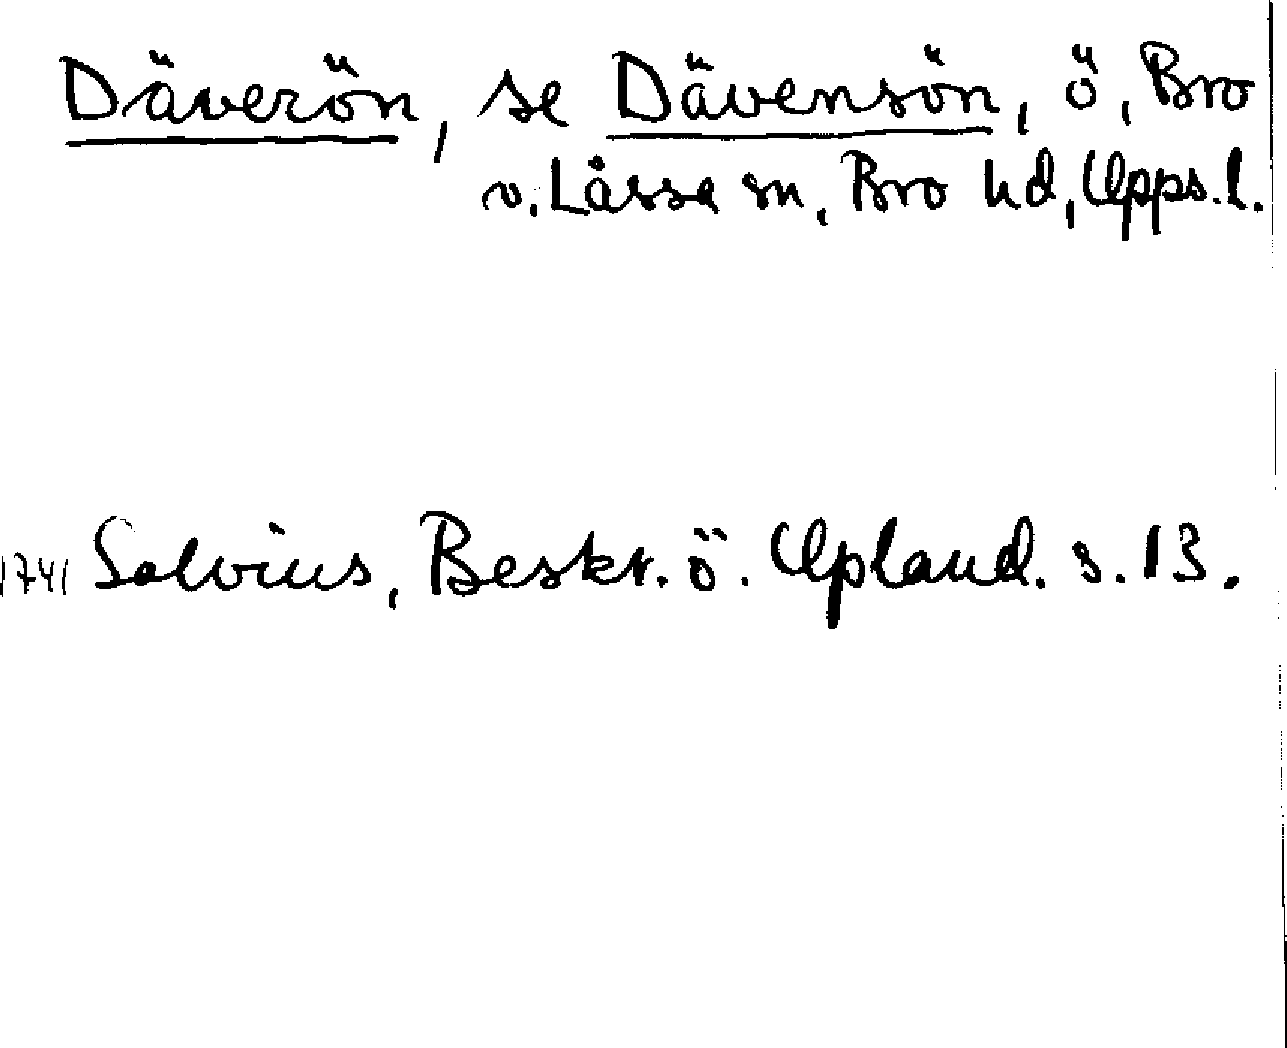 Däverön, se Dävensön, ö, Bro
o. Låssa sn, Bro hd, Upps. l.
1741 Salvius, Beskr. ö. Upland. s. 13.